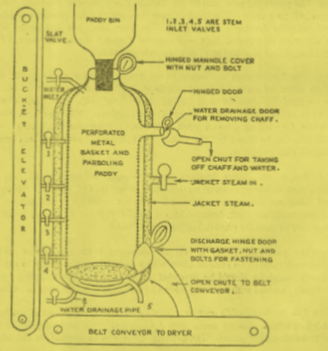 PADDY BIN
1,2,3,4,5 ARE STEM
INLET VALVES
SLAT
VALVE.
HINGED MANHOLE COVER
WITH NUT AND BOLT
WATER
INLET
HINGED DOOR
WATER DRAINAGE DOOR
FOR REMOVING CHAFF.
BUCKET ELEVATOR
PERFORATED
METAL
BASKET AND
PARBOLING
PADDY
OPEN CHUT FOR TAKING
OFF CHAFF AND WATER.
1
JACKET STEAM IN.
2
JACKET STEAM.
3
4
DISCHARGE HINGE DOOR
WITH GASKET, NUT AND
BOLTS FOR FASTENING
OPEN CHUTE TO BELT
CONVEYOR.
5
WATER DRAINAGE PIPE
BELT CONVEYOR TO DRYER